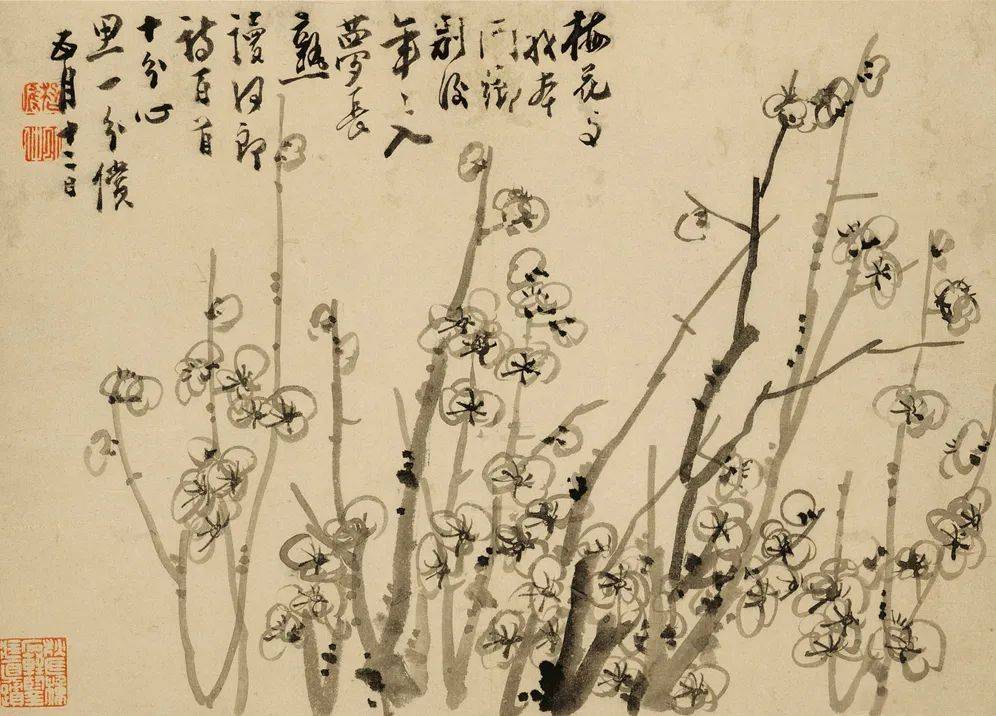 梅花与
我本
同鄉
别後
年々入
夢長
熟
讀何郎
詩百首
十分心
思一分償
月十二日